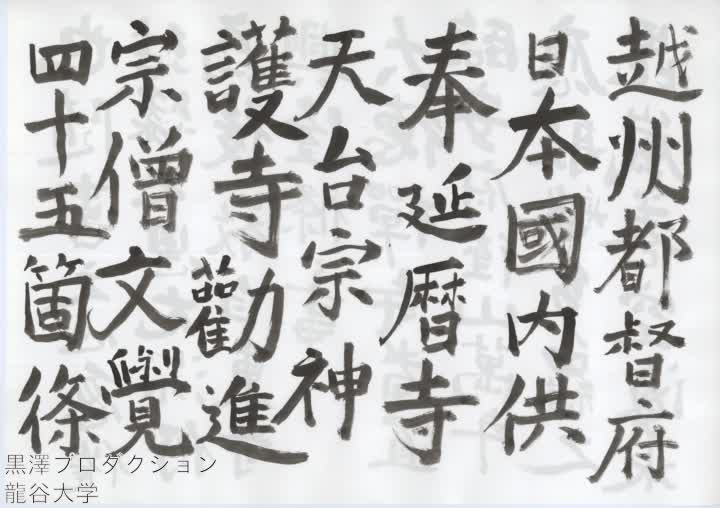 越州都督府
日本國内供
奉延暦寺
天台宗神
護寺勧進
宗僧文覺
四十五箇條
黒澤プロダクション
龍谷大学